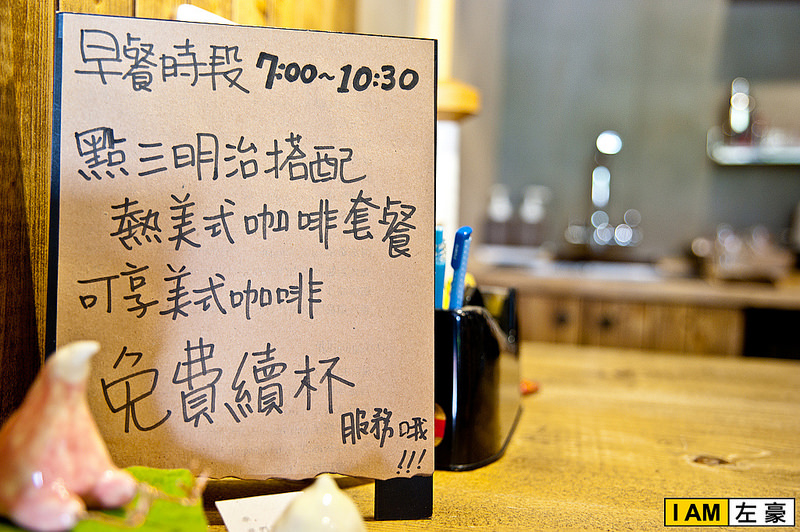 早餐時段 7:00~10:30
點三明治搭配
熱美式咖啡套餐
可享美式咖啡
免費續杯
服務哦
!!!
I AM 左豪